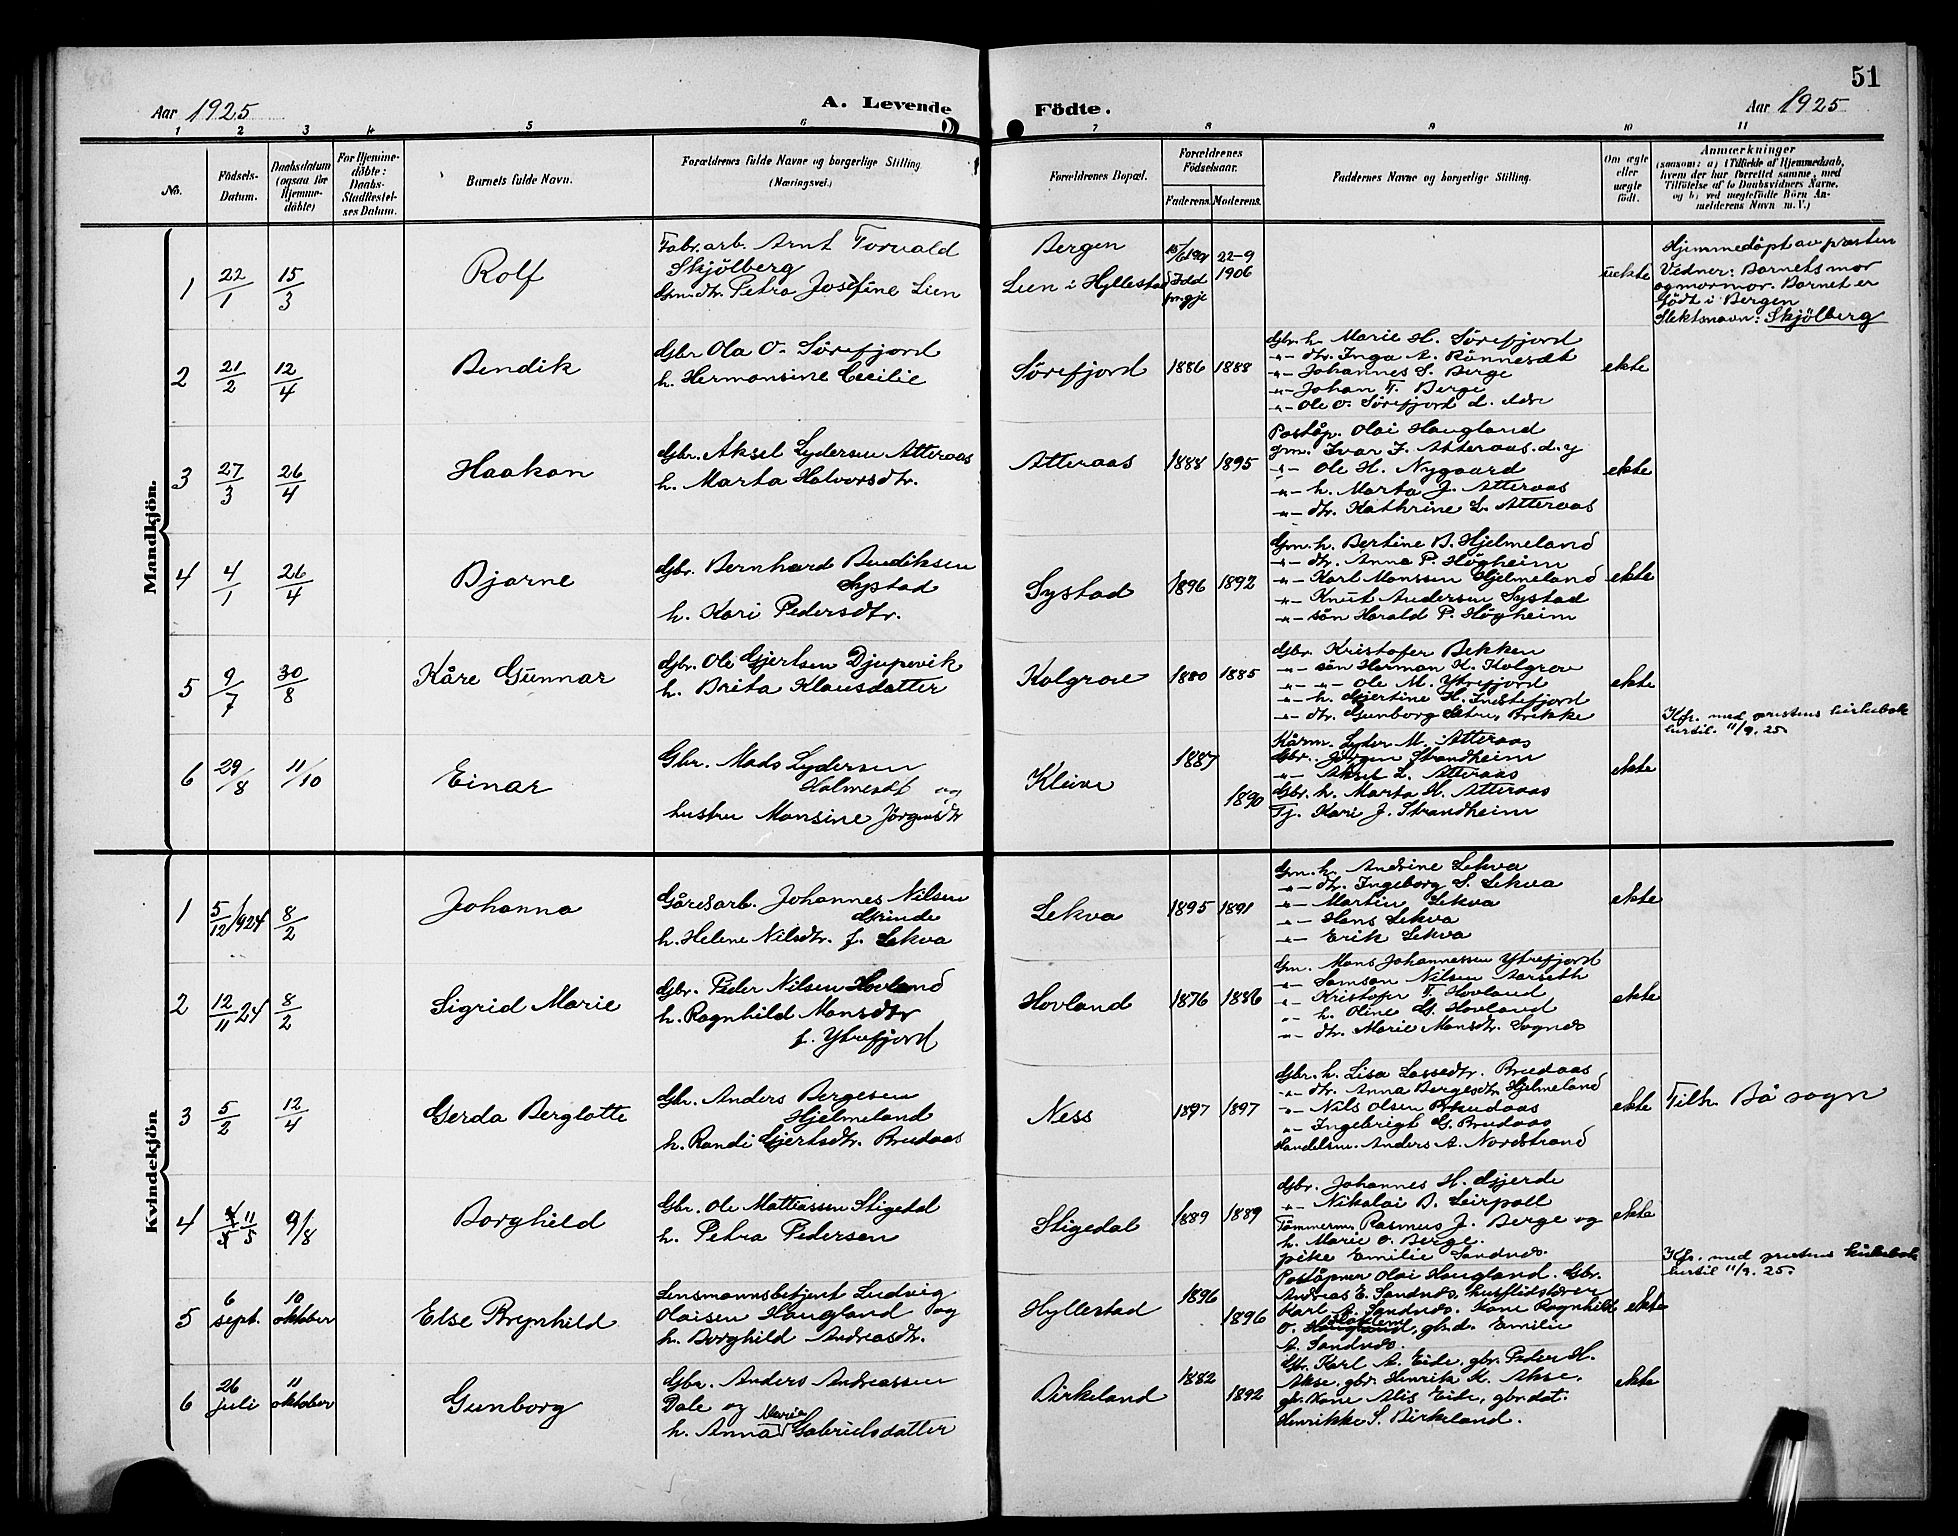 51
Aar 1925
A. Levende
Födte.
Aar 1925
1 2 3 4 5 6 7 8 9 10 11
No.
Födsels-
Datum.
Daabsdatum
(ogsaa for
Hjemme-
döbte)
For Hjemme-
döbte:
Daabs-
Stadfæstel-
ses Datum.
Barnets fulde Navn.
Forældrenes fulde Navne og borgerlige Stilling
(Næringsvei.)
Forældrenes Bopæl.
Forældrenes
Födselsaar.
Faderens. Moderens.
Faddernes Navne og borgerlige Stilling.
Om ægte
eller
uægte
födt.
Anmærkninger
(saasom: a) i Tilfælde af Hjemmedaab,
hvem der har forrettet samme, med
Tilföielse af to Daabsvidners Navne,
og b) ved uægtefödte Börn An-
melderens Navn m. V.)
Mandkjön.
1 22/1 15/3 Rolf
Fabr.arb. Arnt Torvald
Skjölberg
Gm. dtr. Petra Josefine Lien
Bergen
Lien i Hyllestad
22-9
1906
uekte
Hjemmedöpt av presten
Vidner: Barnets mor
og mormor. Barnet er
födt i Bergen
Slektsnavn: Skjölberg
2 21/2 12/4 Bendik
Gbr. Ola O. Sörefjord
h. Hermansine Cecilie
Sörefjord 1886 1888
Gbr. h. Marie H. Sörefjord
-"- dtr. Inga A. Rönneset
-"- Johannes S. Berge
-"- Johan T. Berge
-"- Ole O. Sörefjord d. eldre
ekte
3 27/3 26/4 Haakon
Gbr. Aksel Lydersen Atteraas
h. Marta Halvorsdtr.
Atteraas 1888 1895
Poståp. Olai Haugland
gm. Ivar J. Atteraas. d. y
-"- Ole H. Nygaard
-"- h. Marta J. Atteraas
-"- dtr. Kathrine L. Atteraas
ekte
4 4/1 26/4 Bjarne
Gbr. Bernhard Bendiksen
Systad
h. Kari Pedersdtr.
Systad 1896 1892
Gm. h. Bertine B. Hjelmeland
-"- dtr. Anna P. Högheim
-"- Karl Monssen Hjelmeland
-"- Knut Andersen Systad
-"- sön Harald P. Högheim
ekte
5 9/7 30/8 Kåre Gunnar
Gbr. Ole Gjertsen Djupevik
h. Brita Klausdatter
Kolgrov 1880 1885
Gbr. Kristofer Bekken
-"- sön Herman K. Kolgrov
-"- -"- Ole M. Ytrefjord
-"- h. Gjertine H. Instefjord
-"- dtr. Gunborg Sætre, Brekke
ekte
Kfr. med prestens kirkebok
hertil 11/9. 25.
6 29/8 11/10 Einar
Gbr. Mads Lydersen
Holmest og
hustru Monsine Jörgensdtr
Kleive 1887 1890
Kårm. Lyder M. Atteraas
Gbr. Jörgen Strandheim
-"- Aksel L. Atteraas
Gbr. h. Marta H. Atteraas
Tj. Kari J. Strandheim
ekte
Kvindekjön
1 5/12 1924 8/2 Johanna
Gårdsarb. Johannes Nilsen
Grinde
h. Helene Nilsdtr. f. Lekva
Lekva 1895 1891
Gm. h. Andrine Lekva
-"- dtr. Ingeborg S. Lekva
-"- Martin Lekva
-"- Hans Lekva
-"- Erik Lekva
ekte
2 12/11 24 8/2 Sigrid Marie
Gbr. Peder Nilsen Hovland
h. Ragnhild Monsdtr
f. Ytrefjord
Hovland 1876 1886
Gm. Mons Johannessen Ytrefjord
-"- Samson Nilsen Aarseth
-"- Kristofer T. Hovland
-"- h. Oline G. Hovland
-"- dtr. Marie Monsdtr. Sognes
ekte
3 5/2 12/4 Gerda Berglotte
Gbr. Anders Bergesen
Hjelmeland
h. Randi Gjertsdtr. Bredaas
Ness 1897 1897
Gbr. h. Lisa Lassedtr. Bredaas
-"- dtr. Anna Bergesdtr. Hjelmeland
-"- Nils Olsen Bredaas
-"- Ingebrigt G. Bredaas
Handelsm. Anders A. Nordstrand
ekte
Tilh. Bö sogn
4 11/5 9/8 Borghild
Gbr. Ole Mattiassen Stigedal
h. Petra Pedersen
Stigedal 1889 1889
Gbr. Johannes H. Gjerde
-"- Nikolai D. Leirpoll
Tömmerm. Rasmus J. Berge og
h. Marie O. Berge.
pike Emilie Sandnes.
ekte
Kfr. med prestens kirkebok
hertil 11/9. 25.
5 6 sept. 10 oktober Else Brynhild
Lensmannsbetjent Ludvig
Olaisen Haugland og
h. Borghild Andreasdtr.
Hyllestad 1896 1896
Poståpner Olai Haugland. Gbr.
Andreas E. Sandnes, husflidslærer
Karl A. Sandnes. Kone Ragnhild
O. Haugland, gb.d. Emilie
A. Sandnes.
ekte
6 26 juli 11 oktober Gunborg
Gbr. Anders Andreassen
Dale og
h. Anna Marie Gabrielsdatter
Birkeland 1882 1892
Gbr. Karl A. Eide, gbr. Peder H.
Akse, gbr. Henrik K. Akse,
gbr. kone Alis Eide, gbr.dat.
Henrikke S. Birkeland.
ekte